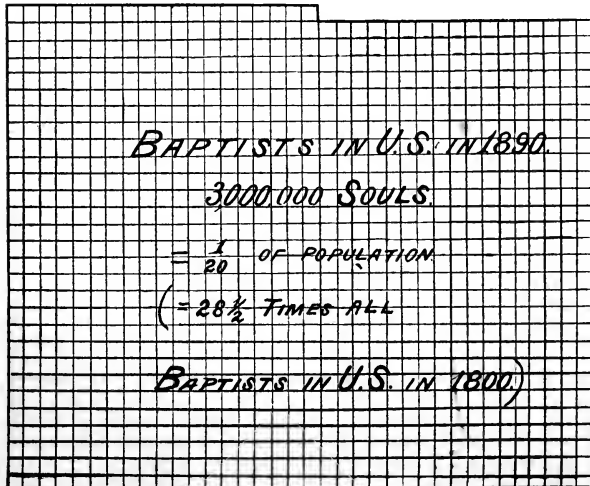 BAPTISTS IN U.S. IN 1890.
3,000,000 SOULS.
= 1/20 OF POPULATION
(= 28 1/2 TIMES ALL
BAPTISTS IN U.S. IN 1800.)